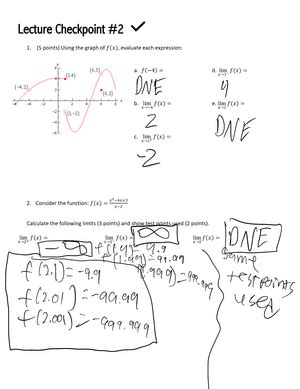 Lecture Checkpoint #2 ✓
1. (5 points) Using the graph of f(x), evaluate each expression:
(-4,2)
(1,4)
(4,5)
(6,2)
(1,-2)
a. f(-4) =
DNE
b. lim x→-4 f(x) =
2
c. lim x→1⁺ f(x) =
-2
d. f(x) =
4
e. f(x) =
DNE
2. Consider the function: f(x) = (x²-4x+3)/(x-2)
Calculate the following limits (3 points) and show test points used (2 points).
lim x→2⁺ f(x) = -∞
lim x→2⁻ f(x) = ∞
lim x→2 f(x) = DNE
f(2.1) = -9.9
f(2.01) = -99.99
f(2.001) = -999.999
= 9.9
= 99.99
= 999.999
same
test points
used